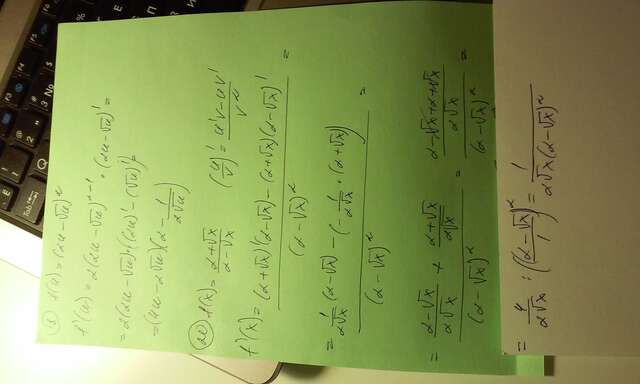 F3 F4 F5 F6
Tab Q
f(u) = (2u - √u)²
f'(u) = 2(2u - √u)²⁻¹ · (2u - √u)' =
= 2(2u - √u) · ((2u)' - (√u)') =
= (4u - 2√u)(2 - 1/(2√u))
20 f(x) = (2+√x)/(2-√x) (u/v)' = (u'v - uv')/v²
f'(x) = ((2+√x)'(2-√x) - (2+√x)(2-√x)')/(2-√x)² =
= (1/(2√x) (2-√x) - (-1/(2√x) · (2+√x)))/(2-√x)² =
= ((2-√x)/(2√x) + (2+√x)/(2√x))/(2-√x)² = ((2-√x+2+√x)/(2√x))/(2-√x)² =
= 4/(2√x) : ((2-√x)/1)² = 1/(2√x(2-√x)²)